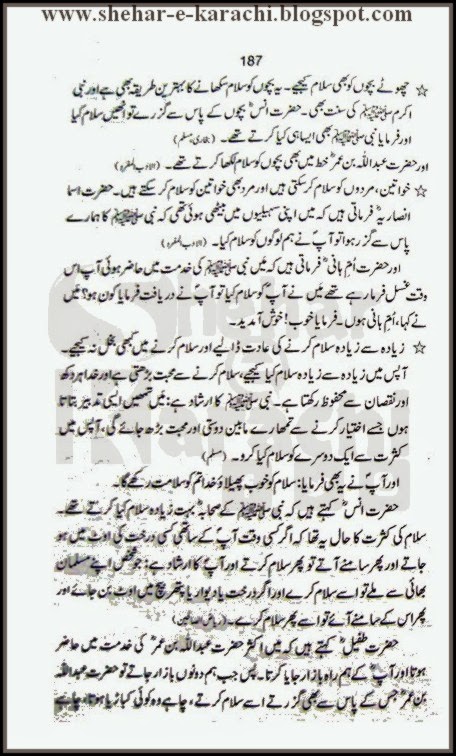 www.shehar-e-karachi.blogspot.com
187
☆ چھوٹے بچوں کو بھی سلام کیجیے۔ یہ بچوں کو سلام سکھانے کا بہترین طریقہ بھی ہے اور نبی
اکرم ﷺ کی سنت بھی۔ حضرت انسؓ بچوں کے پاس سے گزرے تو انھیں سلام کیا
اور فرمایا نبی ﷺ بھی ایسا ہی کیا کرتے تھے۔ (بخاری، مسلم)
اور حضرت عبداللہ بن عمرؓ خط میں بھی بچوں کو سلام لکھا کرتے تھے۔ (الادب المفرد)
☆ خواتین، مردوں کو سلام کر سکتی ہیں اور مرد بھی خواتین کو سلام کر سکتے ہیں۔ حضرت اسما
انصاریہؓ فرماتی ہیں کہ میں اپنی سہیلیوں میں بیٹھی ہوئی تھی کہ نبی ﷺ کا ہمارے
پاس سے گزر ہوا تو آپؐ نے ہم لوگوں کو سلام کیا۔ (الادب المفرد)
اور حضرت اُمِ ہانیؓ فرماتی ہیں کہ میں نبی ﷺ کی خدمت میں حاضر ہوئی آپؐ اس
وقت غسل فرما رہے تھے میں نے آپؐ کو سلام کیا تو آپؐ نے دریافت فرمایا کون ہو؟ میں
نے کہا، اُمِ ہانی ہوں۔ فرمایا خوب! خوش آمدید۔
☆ زیادہ سے زیادہ سلام کرنے کی عادت ڈالیے اور سلام کرنے میں کبھی بخل نہ کیجیے۔
آپس میں زیادہ سے زیادہ سلام کیا کیجیے، سلام کرنے سے محبت بڑھتی ہے اور خدا ہر دکھ
اور نقصان سے محفوظ رکھتا ہے۔ نبی ﷺ کا ارشاد ہے: میں تمھیں ایسی تدبیر بتاتا
ہوں جسے اختیار کرنے سے تمھارے مابین دوستی اور محبت بڑھ جائے گی، آپس میں
کثرت سے ایک دوسرے کو سلام کیا کرو۔ (مسلم)
اور آپؐ نے یہ بھی فرمایا: سلام کو خوب پھیلاؤ خدا تم کو سلامت رکھے گا۔
حضرت انسؓ کہتے ہیں کہ نبی ﷺ کے صحابہؓ بہت زیادہ سلام کیا کرتے تھے۔
سلام کی کثرت کا حال یہ تھا کہ اگر کسی وقت آپؐ کے ساتھی کسی درخت کی اوٹ میں ہو
جاتے اور پھر سامنے آتے تو پھر سلام کرتے اور آپؐ کا ارشاد ہے: جو شخص اپنے مسلمان
بھائی سے ملے تو اسے سلام کرے اور اگر درخت یا دیوار یا پتھر بیچ میں اوٹ بن جائے اور
پھر اس کے سامنے آئے تو اسے پھر سلام کرے۔ (ریاض الصالحین)
حضرت طفیلؓ کہتے ہیں کہ میں اکثر حضرت عبداللہ بن عمرؓ کی خدمت میں حاضر
ہوتا اور آپؓ کے ہم راہ بازار جایا کرتا۔ پس جب ہم دونوں بازار جاتے تو حضرت عبداللہ
بن عمرؓ جس کے پاس سے بھی گزرتے اسے سلام کرتے، چاہے وہ کوئی کباڑیا ہوتا، چاہے
Shehar
e
Karachi